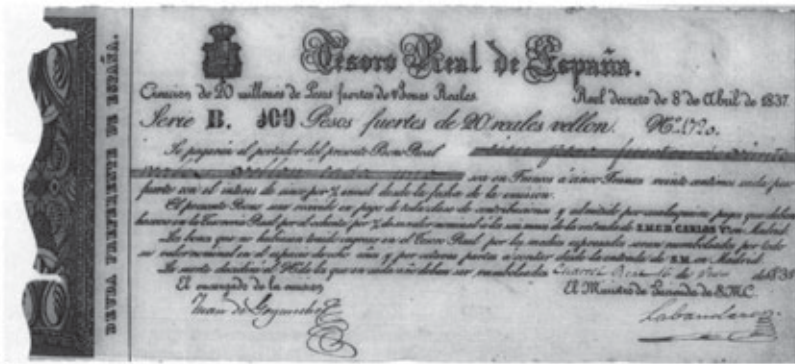 DEUDA PREFERENTE DE ESPAÑA.
Tesoro Real de España.
Creacion de 20 millones de Pesos fuertes de Bonos Reales. Real decreto de 8 de Abril de 1837
Serie B. 100 Pesos fuertes de 20 reales vellon. Nº
Se pagarán al portador del presente Bono Real
sea en Francos á cinco Francos veinte centimos cada peso
fuerte con el interes de cinco por % anual desde la fecha de la emision.
El presente Bono sera recibido en pago de toda clase de contribuciones y admitido por cualesquiera pagos que deban
hacerse en la Tesoreria Real por el ochenta por % de su valor nominal á los seis meses de la entrada de S.M.C. D. CARLOS Vº en Madrid.
Los bonos que no hubiesen tenido ingreso en el Tesoro Real por los medios espresados seran reembolsados por todo
su valor nominal en el espacio de ocho años y por octavas partes á contar desde la entrada de S.M. en Madrid.
La suerte decidirá el de los que en cada año deban ser reembolsados. de 1838
El encargado de la emision El Ministro de Hacienda de S.M.C.
Juan de
Labandero